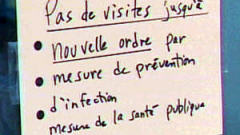 Pas de visites jusqu'à
nouvelle ordre par
mesure de prévention
d'infection
mesure de la santé publique